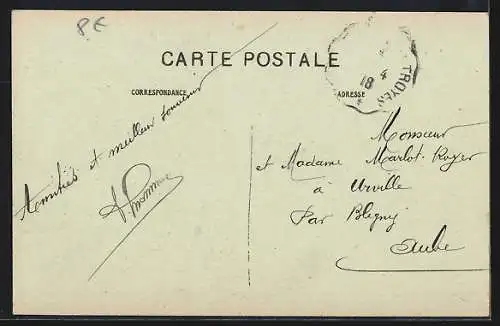 8€
CARTE POSTALE
CORRESPONDANCE
ADRESSE
TROYES
18 4
Amitiés et meilleur souvenir
Monsieur
et Madame Marlot-Royer
à Urville
Par Bligny
Aube